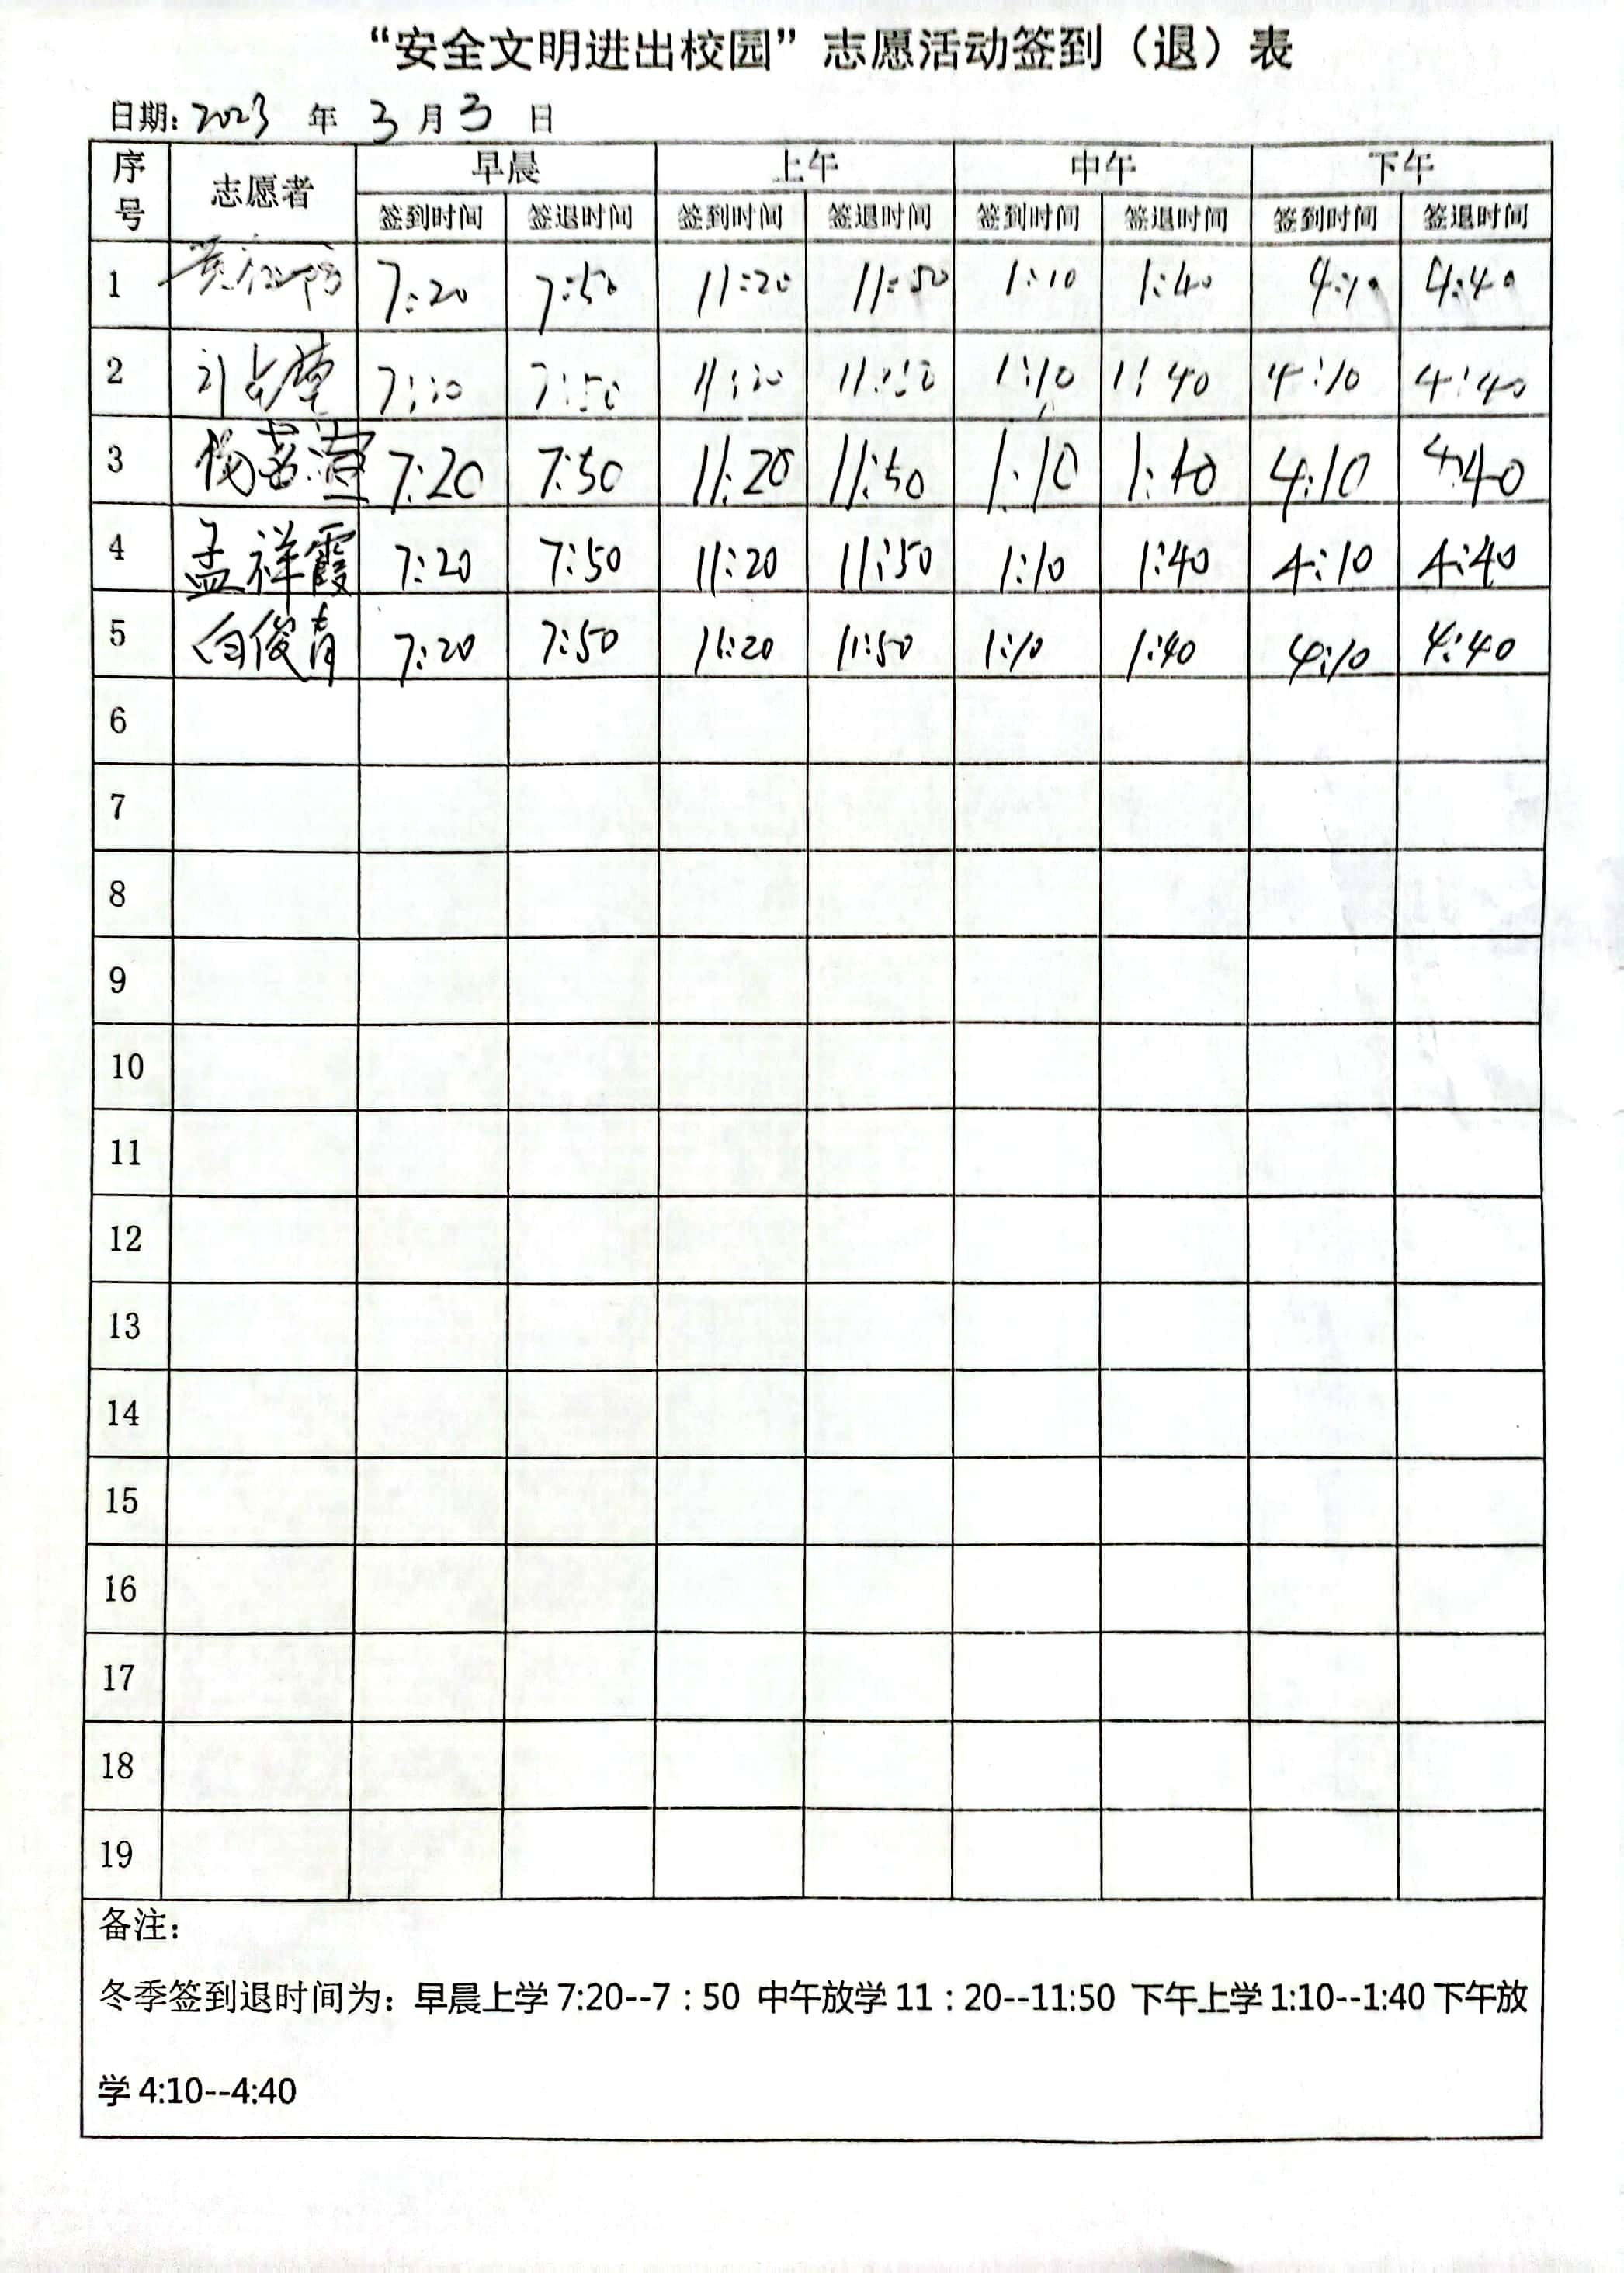 “安全文明进出校园”志愿活动签到（退）表
日期: 2023 年 3 月 3 日
序号 志愿者 早晨 上午 中午 下午
签到时间 签退时间 签到时间 签退时间 签到时间 签退时间 签到时间 签退时间
1 7:20 7:50 11:20 11:50 1:10 1:40 4:10 4:40
2 7:20 7:50 11:20 11:50 1:10 1:40 4:10 4:40
3 7:20 7:50 11:20 11:50 1:10 1:40 4:10 4:40
4 孟祥霞 7:20 7:50 11:20 11:50 1:10 1:40 4:10 4:40
5 白俊青 7:20 7:50 11:20 11:50 1:10 1:40 4:10 4:40
6
7
8
9
10
11
12
13
14
15
16
17
18
19
备注:
冬季签到退时间为: 早晨上学 7:20--7：50 中午放学 11：20--11:50 下午上学 1:10--1:40 下午放
学 4:10--4:40